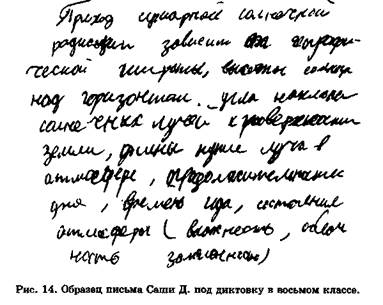 Приход суммарной солнечной
радиации зависит от географи-
ческой широты, высоты солнца
над горизонтом. угла наклона
солнечных лучей к поверхности
земли, длины пути луча в
атмосфере, продолжительности
дня, времени года, состояние
атмосферы (влажность, облач
ность
Рис. 14. Образец письма Саши Д. под диктовку в восьмом классе.